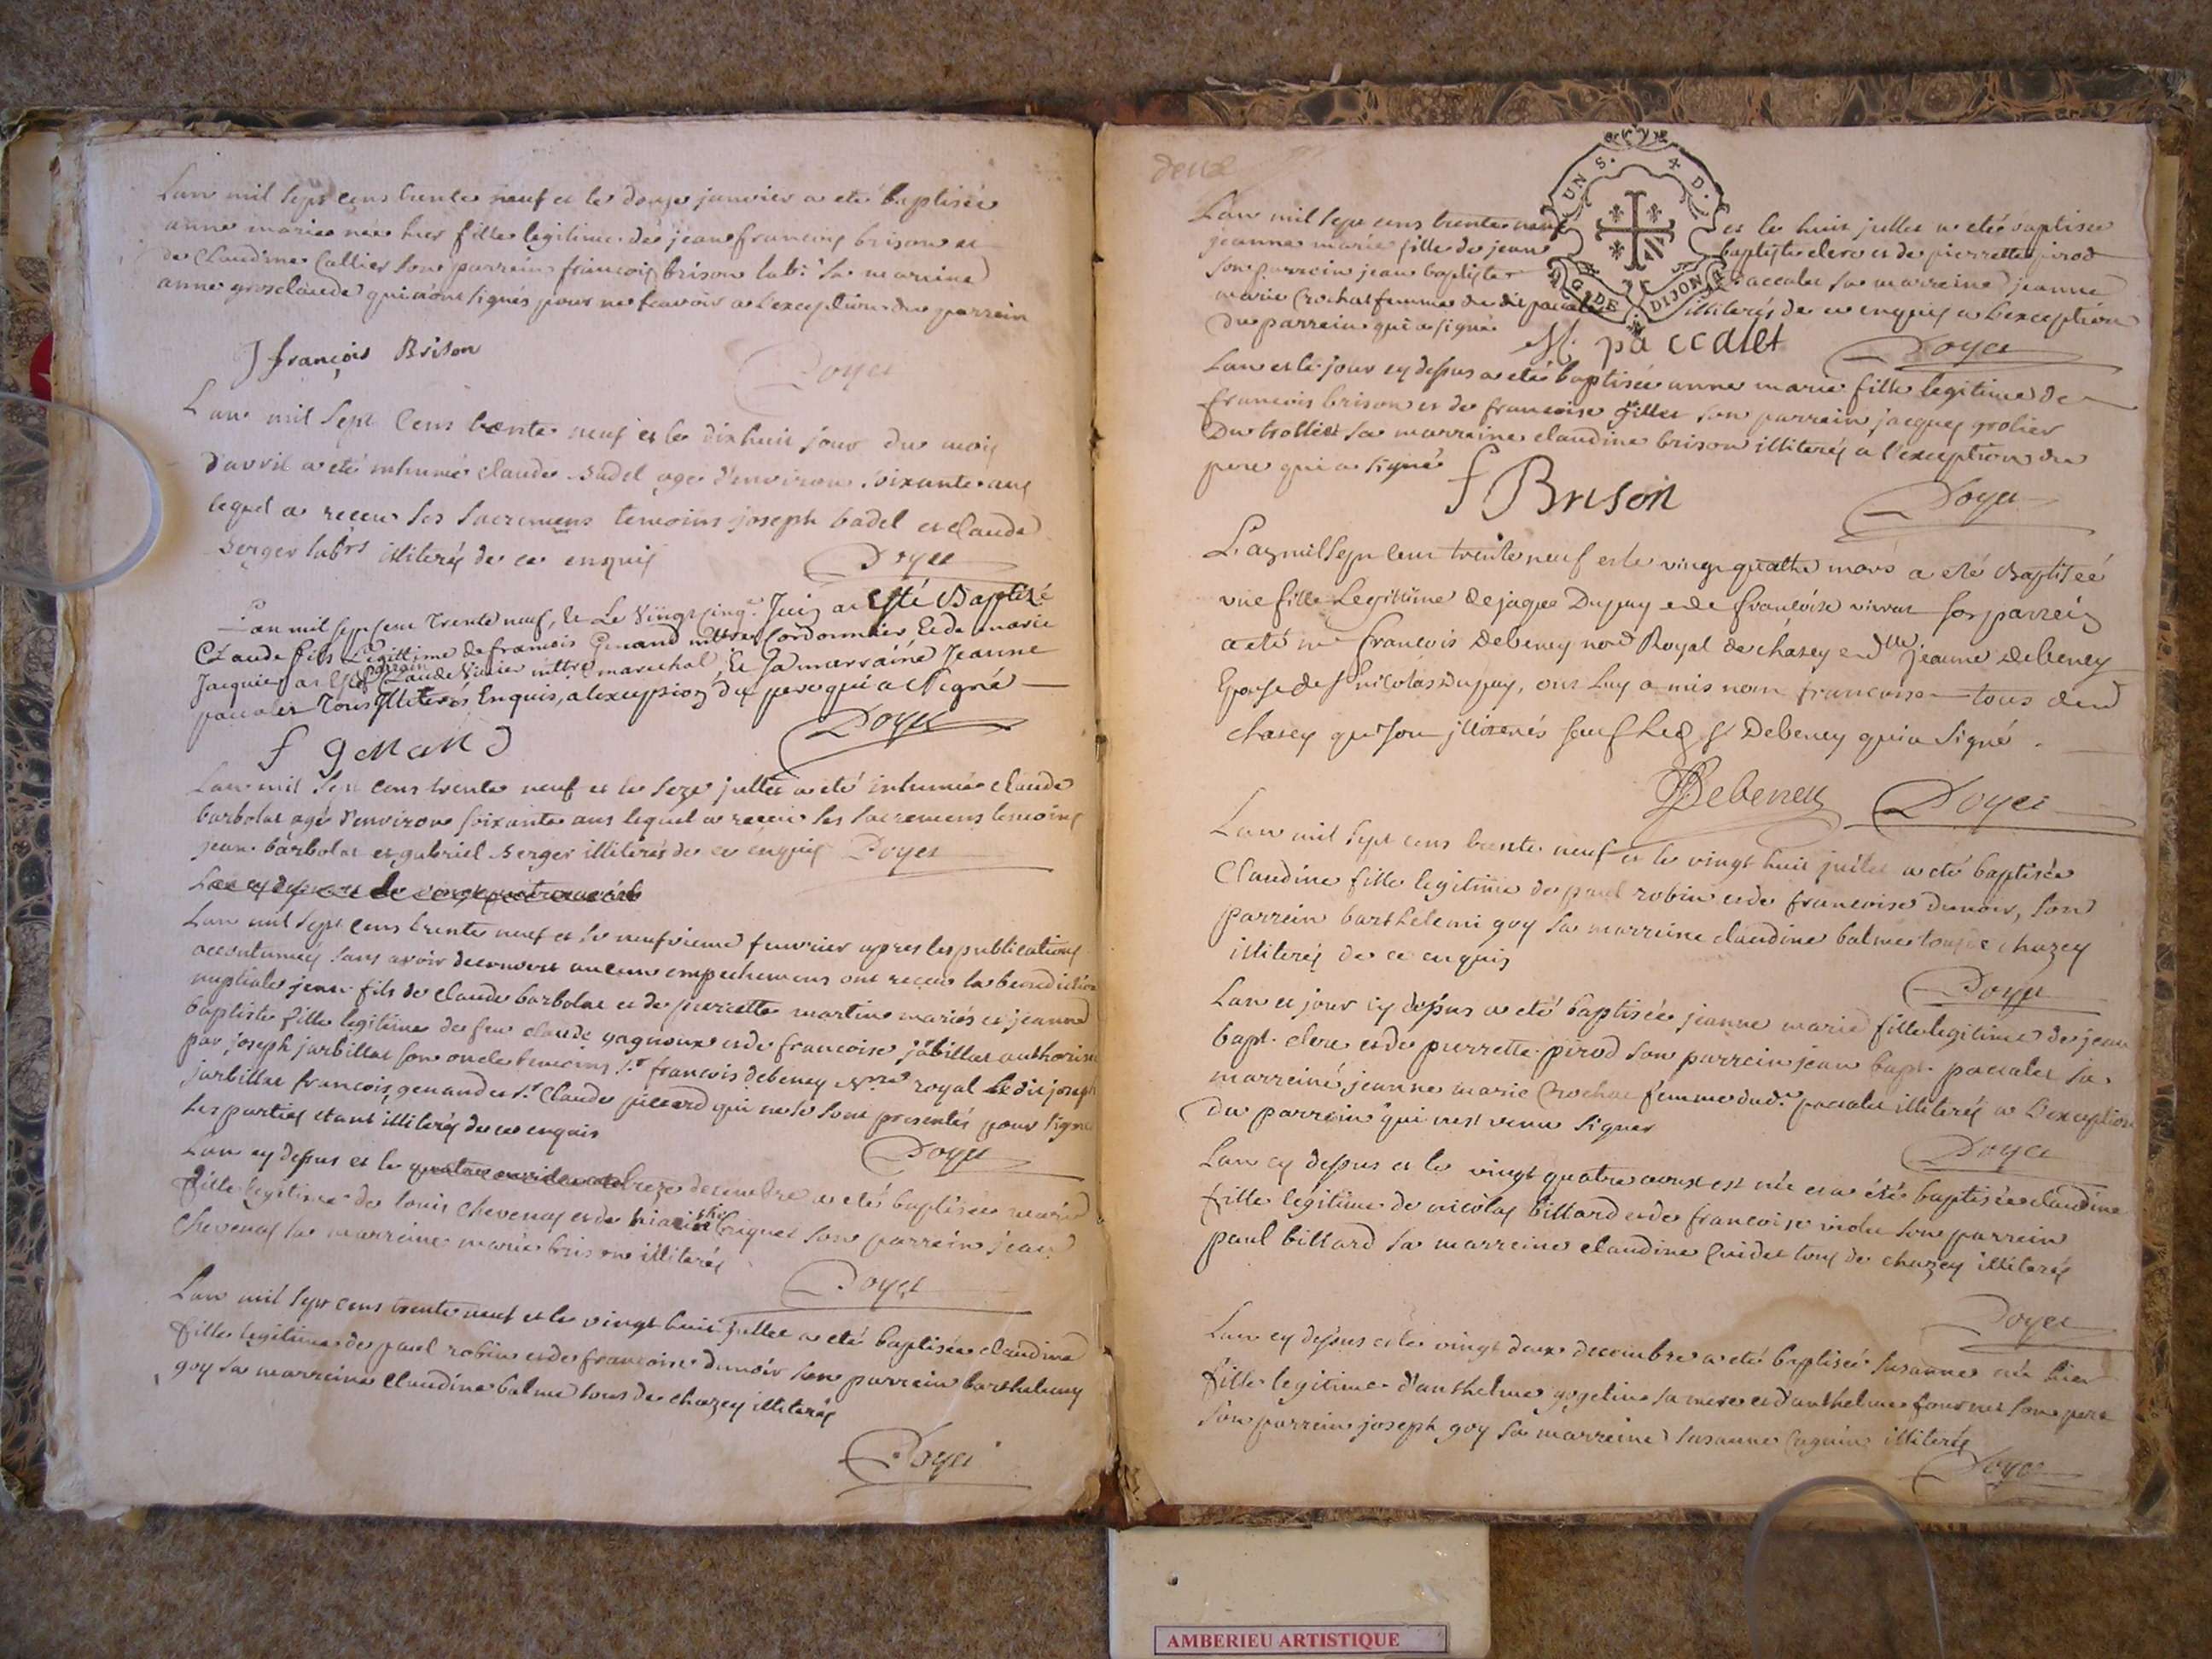 Lan mil sept cens trente neuf et le douze janvier a eté baptisée
anne marie née hier fille legitime de jean francois brison et
de Claudine Callier son parrein francois brison lab.r sa marreine
anne grosclaude qui n'ont signés pour ne scavoir a l'exception du parrein
J françois Brison
Doyet
Lan mil sept Cens trente neuf et le dixhuit jour du mois
d'avril a eté inhumé claude badel agé d'environ soixante ans
lequel a receu les sacremens temoins joseph badel et claude
berger labrs illiterés de ce enquis
Doyet
Lan mil sept cent Trente neuf, et Le Vingt cinqe Juin a Esté Baptizé
Claude fils Légittime de francois Genand mttre Cordonnier et de marie
Jacquier parrain Claude Vivier mttre marechal, et Sa marraine Jeanne
paccalet Tous Illiterés Enquis, a lexception du pere qui a Signé
f genand
Doyet
Lan mil sept cens trente neuf et le seze jullet a eté inhumé claude
barbolat agé d'environ soixante ans lequel a receu les sacremens temoins
jean barbolat et gabriel berger illiterés de ce enquis Doyet
Lan cy dessus et le vingt quatre
Lan mil sept cens trente neuf et le neufvieme fevrier apres les publications
accoutumées sans avoir decouvert aucun empechemens ont receu la benediction
nuptiale jean fils de claude barbolat et de pierrette martin mariés et jeanne
baptiste fille legitime de feu claude gagnoux et de francoise jabillet authorisée
par joseph jarbillet son oncle temoins sr francois debeney nre royal le dit joseph
jarbillet francois genand et sr Claude jeccard qui ne se sont presentés pour signer
les parties etant illiterés de ce enquis
Doyet
Lan cy dessus et le treze decembre a eté baptisée marie
fille legitime de louis chevenas et de briquet son parrein jean
Chevenas sa marreine marie brison illiterés
Doyet
Lan mil sept cens trente neuf et le vingt huit jullet a eté baptisée claudine
fille legitime de paul robin et de francoise dunoir son parrein barthelemy
goy sa marreine Claudine balme tous de chazey illiterés
Doyet
deux
UN S. 4 D.
G. DE DIJON
Lan mil sept cens trente neuf et le huit jullet a eté baptisée
jeanne marie fille de jean baptiste clerc et de pierrette pirod
son parrein jean baptiste paccalet sa marreine jeanne
marie Crochat femme du dit paccalet illiterés de ce enquis a l'exception
du parrein qui a signé
M. paccalet
Doyet
Lan et le jour cy dessus a eté baptisée anne marie fille legitime de
francois brison et de francoise gillet son parrein jacques grolier
du trolliet sa marreine claudine brison illiterés a l'exception du
pere qui a signé
f Brison
Doyet
Lan mil sept cent trente neuf et le vingt quattre mars a eté Baptiseé
une fille Legittime de jaque Dupuy et de francoise vivrat son parrein
a eté me francois Debeney nore Royal de chasey et dlle jeanne debeney
Epouse de sr nicolas Dupuy, ont Luy a mis nom francoise tous dud
chasey qui son jlliterés sauf Led sr Debeney qui a signé.
Debeney
Doyet
Lan mil sept cens trente neuf et le vingt huit juillet a eté baptisée
Claudine fille legitime de paul robin et de francoise dunoir, son
parrein barthelemi goy sa marreine claudine balme tous de chazey
illiterés de ce enquis
Doyet
Lan et jour cy dessus a eté baptisée jeanne marie fille legitime de jean
bapt. clerc et de pierrette pirod son parrein jean bapt. paccalet sa
marreine jeanne marie Crochat femme dud. paccalet illiterés a l'exception
du parrein qui n'est venu signer
Doyet
Lan cy dessus et le vingt quatre aoust est née et a été baptisée claudine
fille légitime de nicolas billard et de francoise violet son parrein
paul billard sa marreine claudine Guidet tous de chazey illiterés
Doyet
Lan cy dessus et le vingt deux decembre a eté baptisée susanne née hier
fille legitime d'anthelme gogelin sa mere et d'anthelme fournet son pere
son parrein joseph goy sa marreine susanne Cagnin illiterés
Doyet
AMBERIEU ARTISTIQUE